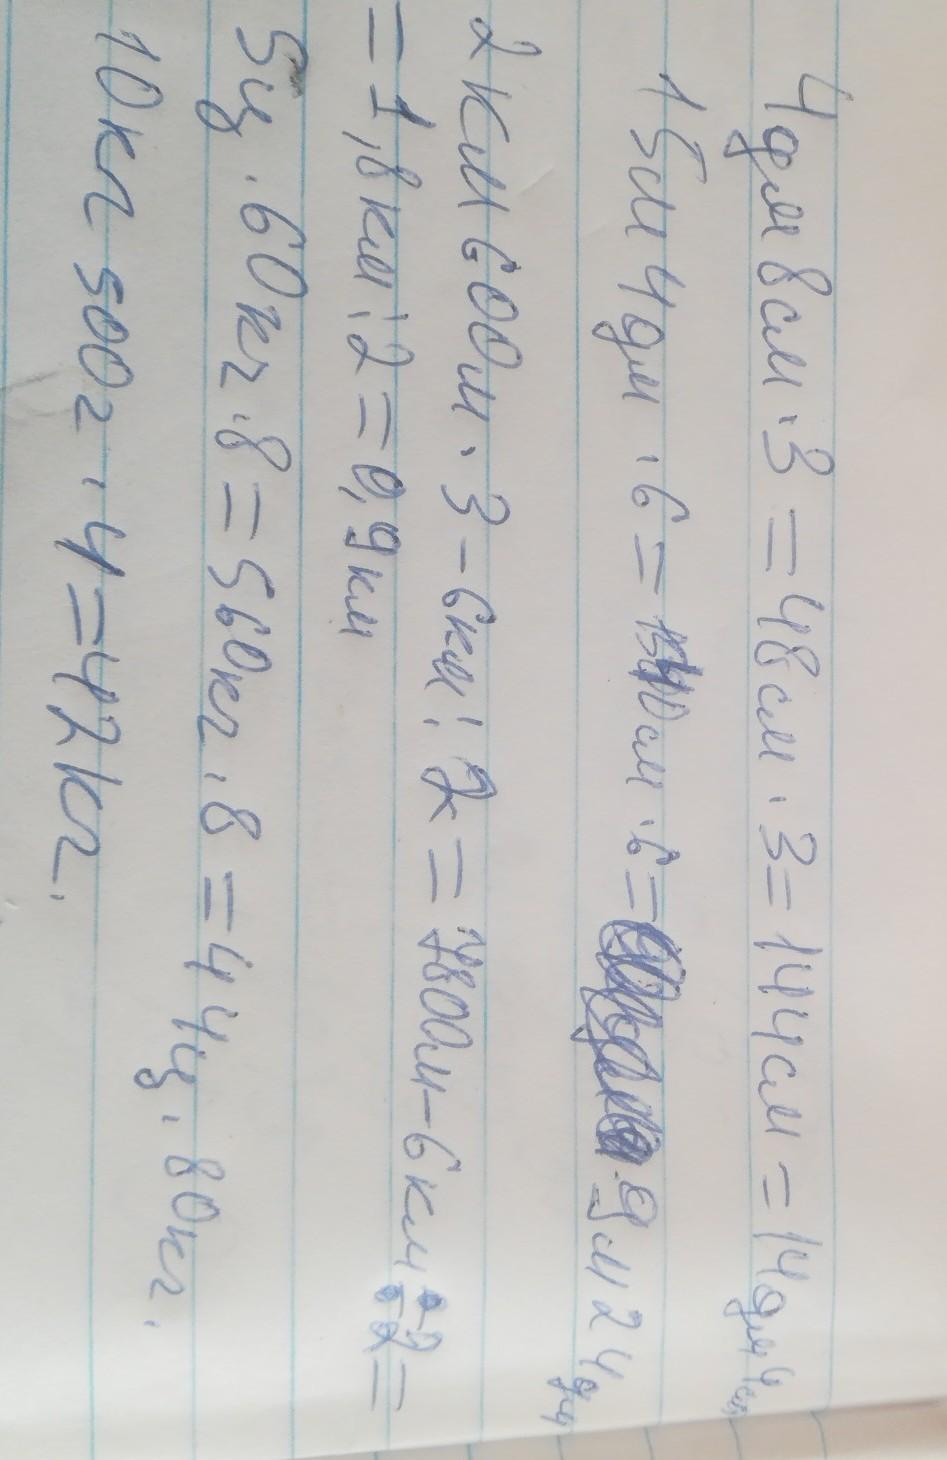 4дм 8см · 3 = 48см · 3 = 144см = 14дм 4см
15м 4дм · 6 = 1540см · 6 = 9м 24дм
2км 600м · 3 - 6км : 2 = 7800м - 6км : 2 =
= 1,8км : 2 = 0,9км
5ц. 60кг · 8 = 560кг · 8 = 44ц. 80кг.
10кг 500г · 4 = 42кг.